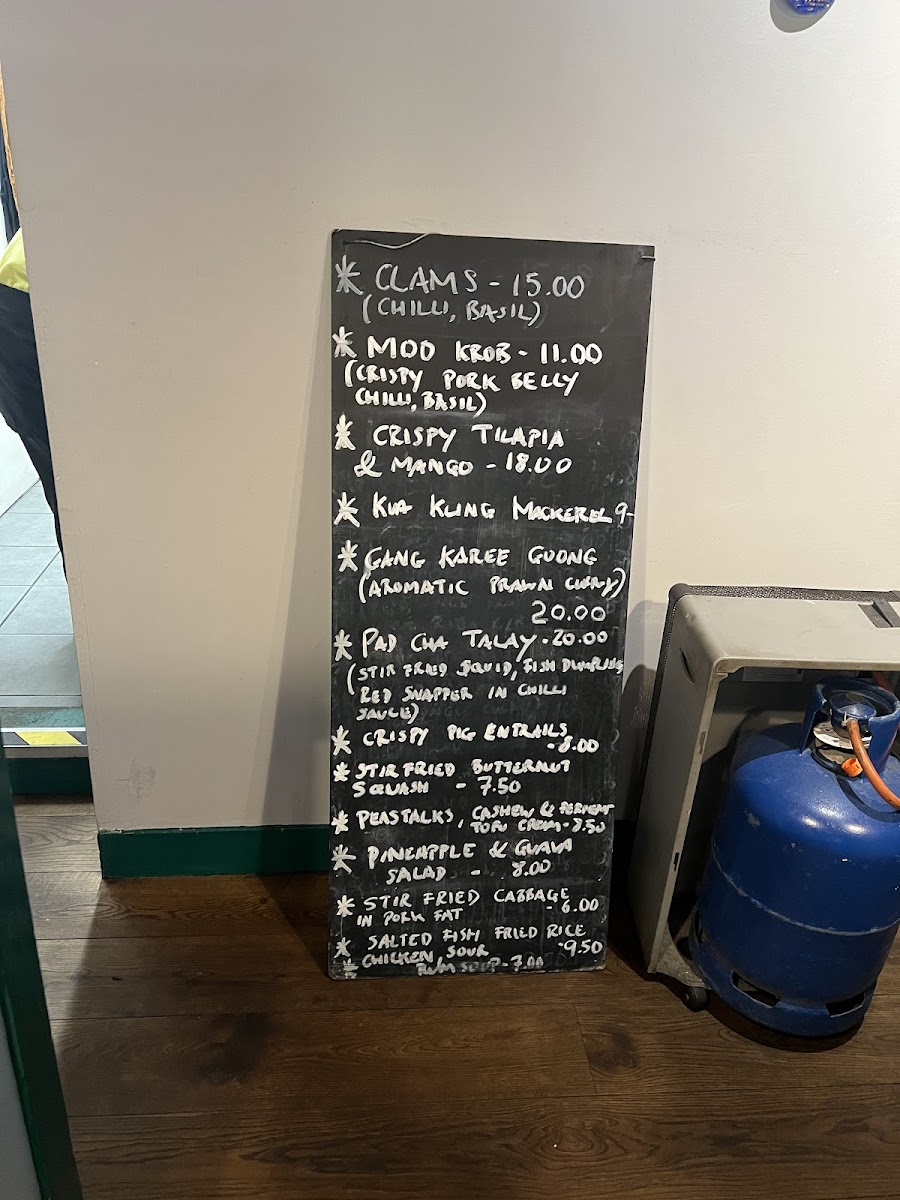 * CLAMS - 15.00
(CHILLI, BASIL)
* MOO KROB - 11.00
(CRISPY PORK BELLY
CHILLI, BASIL)
* CRISPY TILAPIA
& MANGO - 18.00
* KUA KLING MACKEREL 9-
* GANG KAREE GUONG
(AROMATIC PRAWN CURRY)
20.00
* PAD CHA TALAY - 20.00
(STIR FRIED SQUID, FISH DUMPLING
RED SNAPPER IN CHILLI
SAUCE)
* CRISPY PIG ENTRAILS
- 8.00
* STIR FRIED BUTTERNUT
SQUASH - 7.50
* PEASTALKS, CASHEW & FERMENT
TOFU CREAM - 8.50
* PINEAPPLE & GUAVA
SALAD - 8.00
* STIR FRIED CABBAGE
IN PORK FAT - 6.00
* SALTED FISH FRIED RICE
- 9.50
* CHICKEN SOUR
* SOUP - 7.00